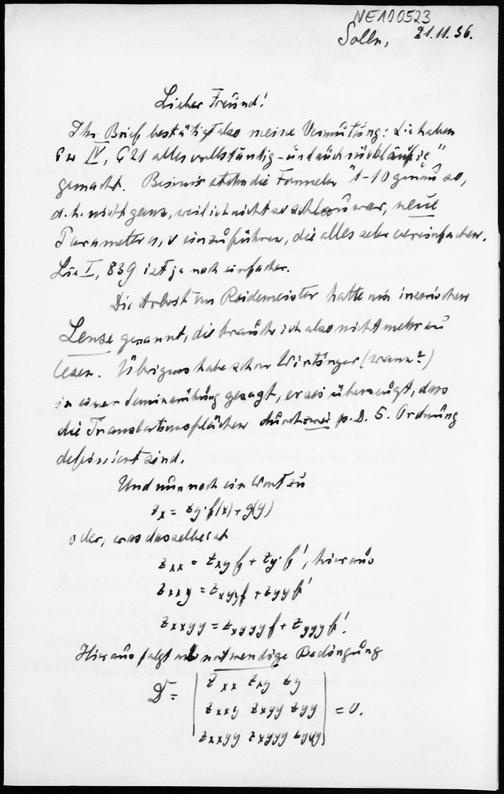 NE100523
Solln, 21.11.36.
Lieber Freund!
Ihr Brief bestätigt also meine Vermutung: Lie haben
Sie IV, § 21 alles vollständig - und auch rückläufig"
gemacht. Bei mir stehn die Formeln 1-10 genau so,
d.h. nicht ganz, weil ich nicht so schlau war, neue
Parameter u, v einzuführen, die alles sehr vereinfachen.
Lie I, 839 ist ja noch einfacher.
Die Arbeit von Reidemeister hatte mir inzwischen
Lense genannt, die brauche ich also nicht mehr zu
lesen. Übrigens habe schon Wirtinger (wann?)
in einer Seminarübung gesagt, er sei überzeugt, dass
die Translationsflächen durch zwei p.D. 5. Ordnung
definiert sind.
Und nun noch ein Wort zu
z_x = z_y · f(x) + g(y)
oder, was dasselbe ist
z_xx = z_xy f + z_y · f', hieraus
z_xxy = z_xyy f + z_yy f'
z_xxyy = z_xyyy f + z_yyy f'.
Hieraus folgt als notwendige Bedingung
D = | z_xx z_xy z_y |
| z_xxy z_xyy z_yy | = 0.
| z_xxyy z_xyyy z_yyy |